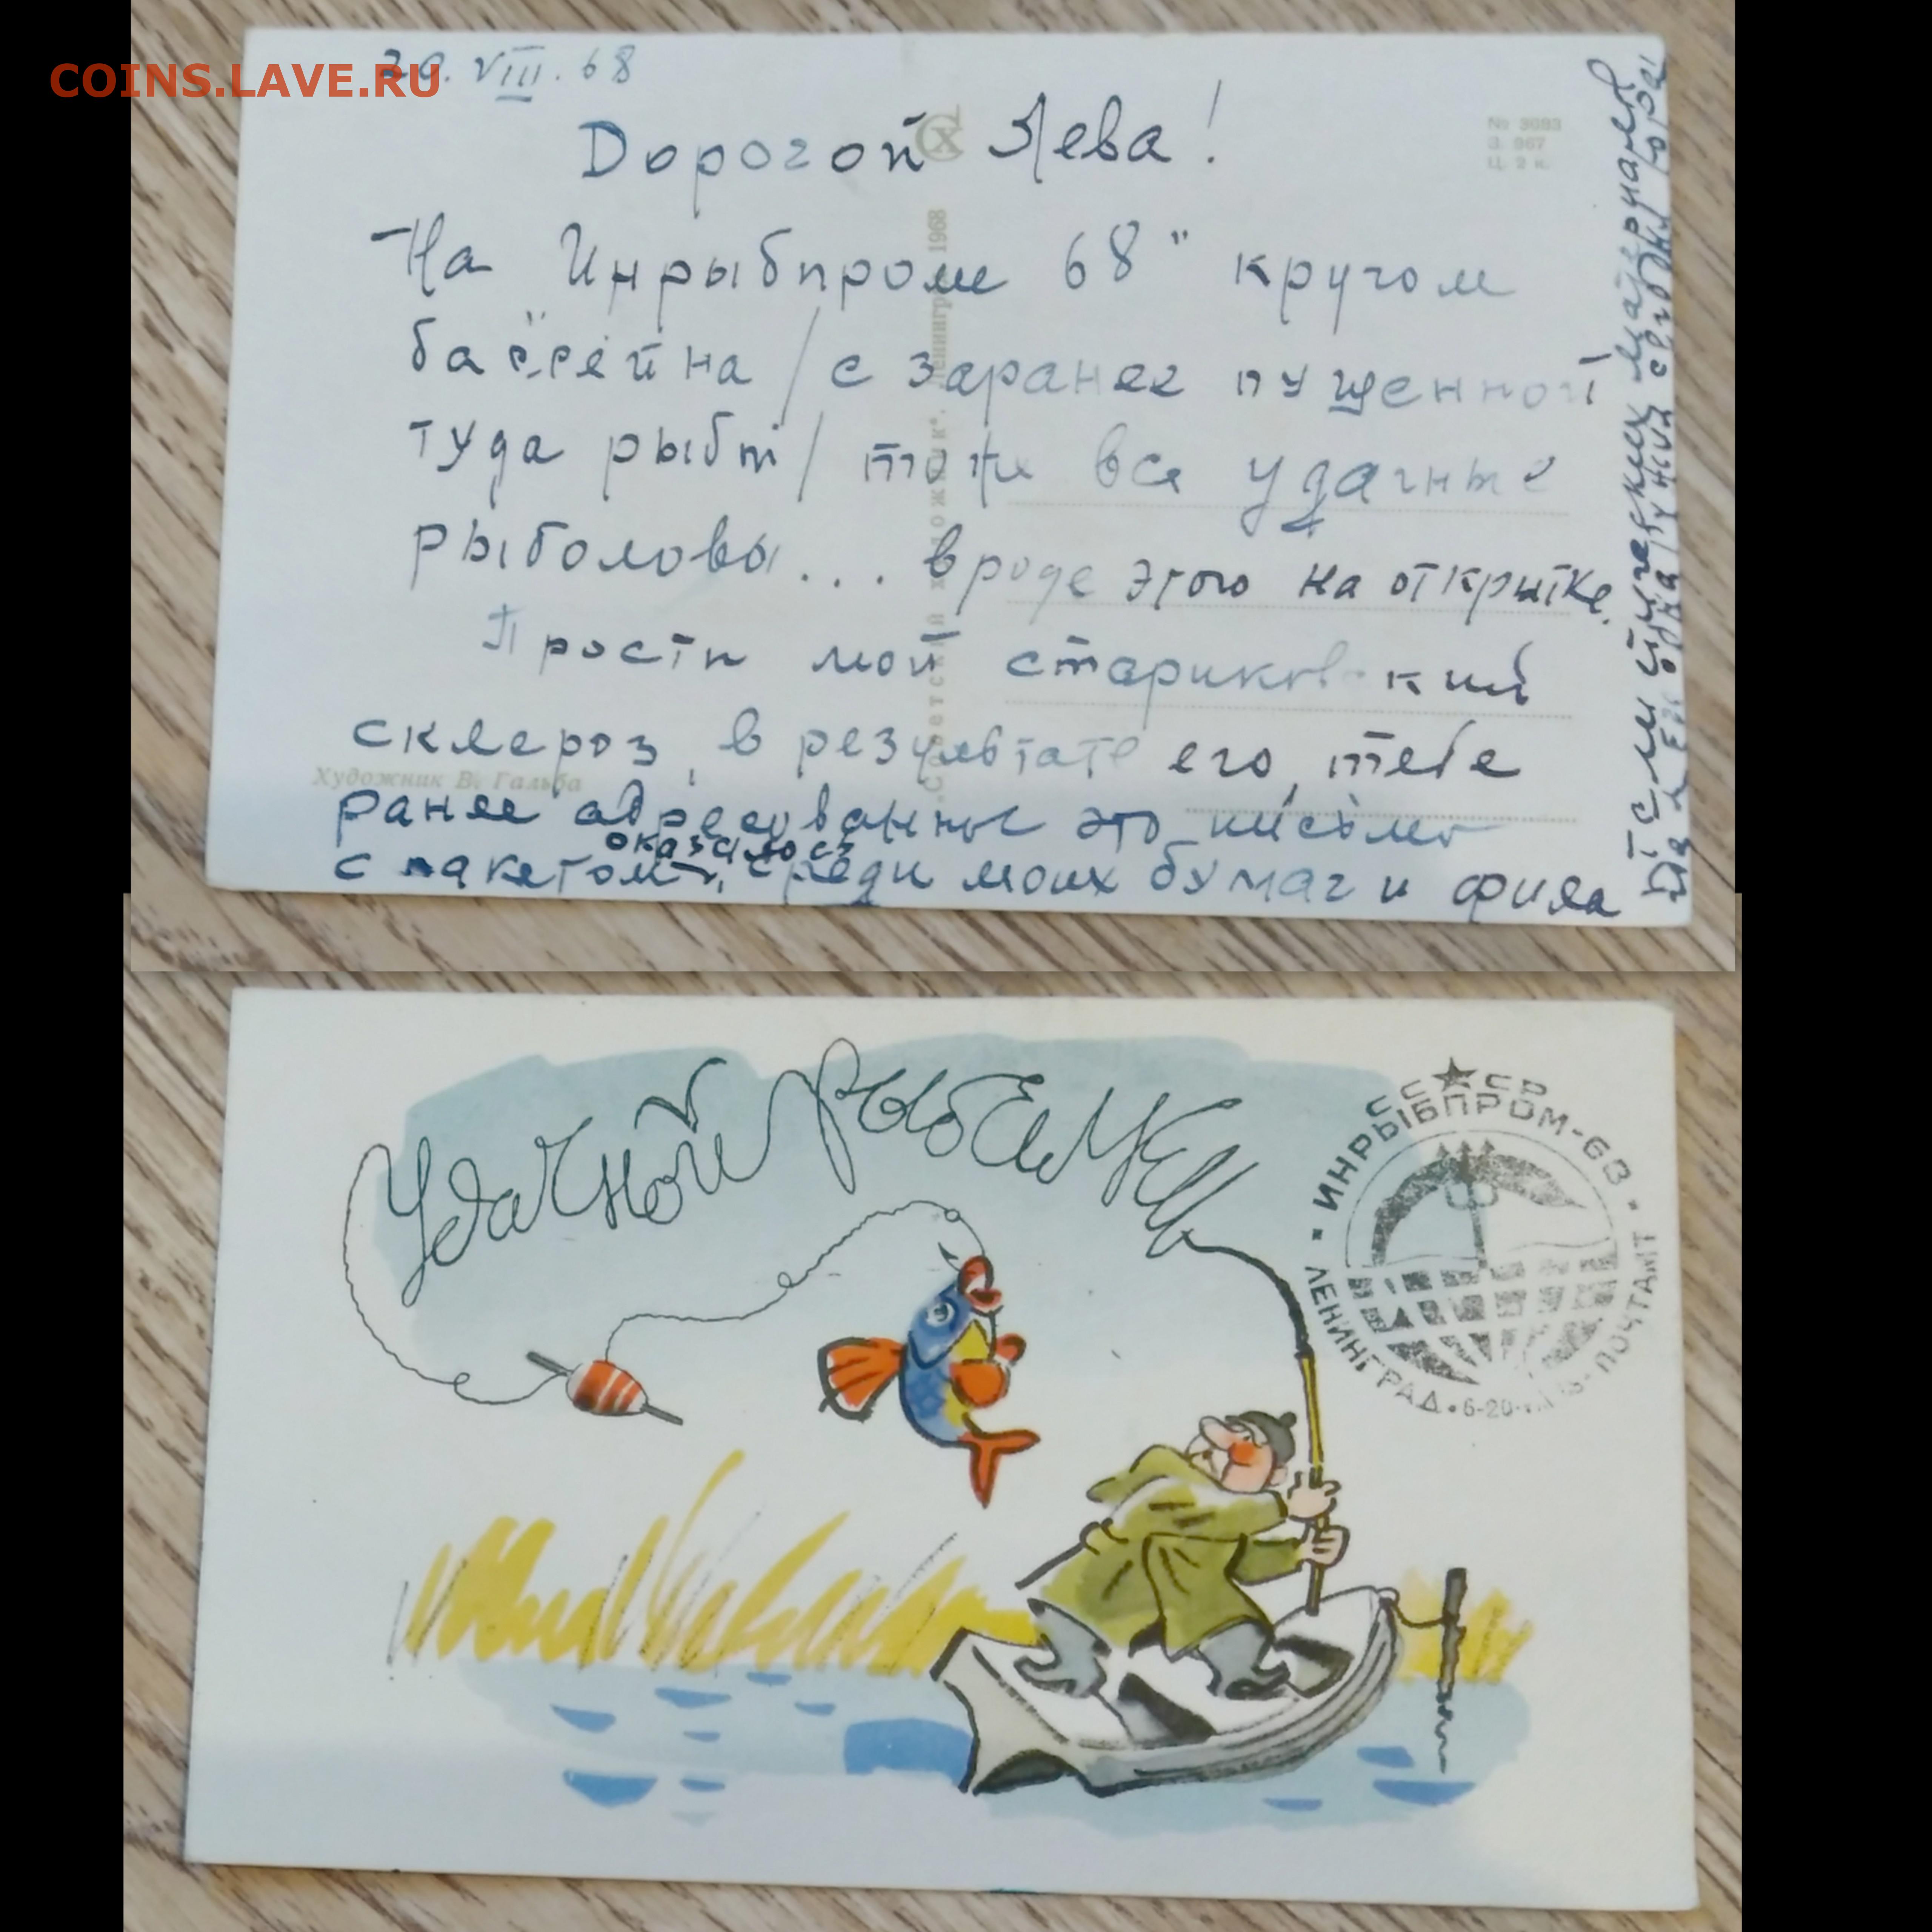 COINS.LAVE.RU
20. VIII. 68
Дорогой Лева!
№ 3683
З. 967
Ц. 2 к.
На Инрыбпром 68" кругом
бассейна / с заранее пущенной
туда рыбой / тоже все удачные
рыболовы... вроде этого на открытке.
Прости мой стариковский
склероз, в результате его, тебе
ранее адресованное это письмо
оказалось
с пакетом, среди моих бумаг и фила
телистических материалов
обнаружил сегодня утром
Художник В. Гальба
„Советский художник". Ленинград 1968
Удачной рыбалки
СССР
• ИНРЫБПРОМ-68 •
ЛЕНИНГРАД • 6-20 • ПОЧТАМТ